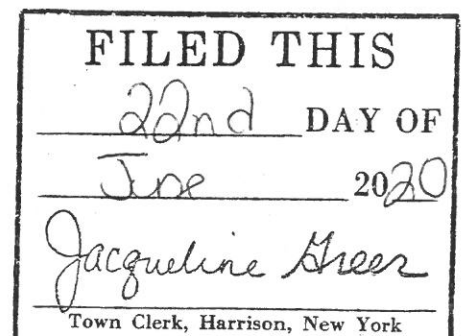 FILED THIS
22nd DAY OF
June 2020
Jacqueline Greer
Town Clerk, Harrison, New York